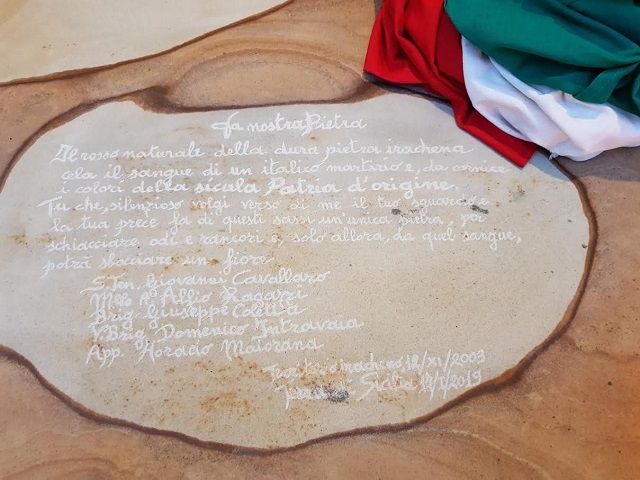 La nostra Pietra
Il rosso naturale della dura pietra irachena
cela il sangue di un italico martirio e, da cornice
i colori della sicula Patria d'origine.
Tu che, silenzioso volgi verso di me il tuo sguardo e
la tua prece fa di questi sassi un'unica pietra, per
schiacciare odi e rancori e, solo allora, da quel sangue,
potrà sbocciare un fiore.
S.Ten. Giovanni Cavallaro
Alfio Ragazzi
Brig. Giuseppe Coletta
V.Brig. Domenico Intravaia
App. Horacio Maiorana
iracheno, 12/XI/2003
Sicilia 17/I/2019